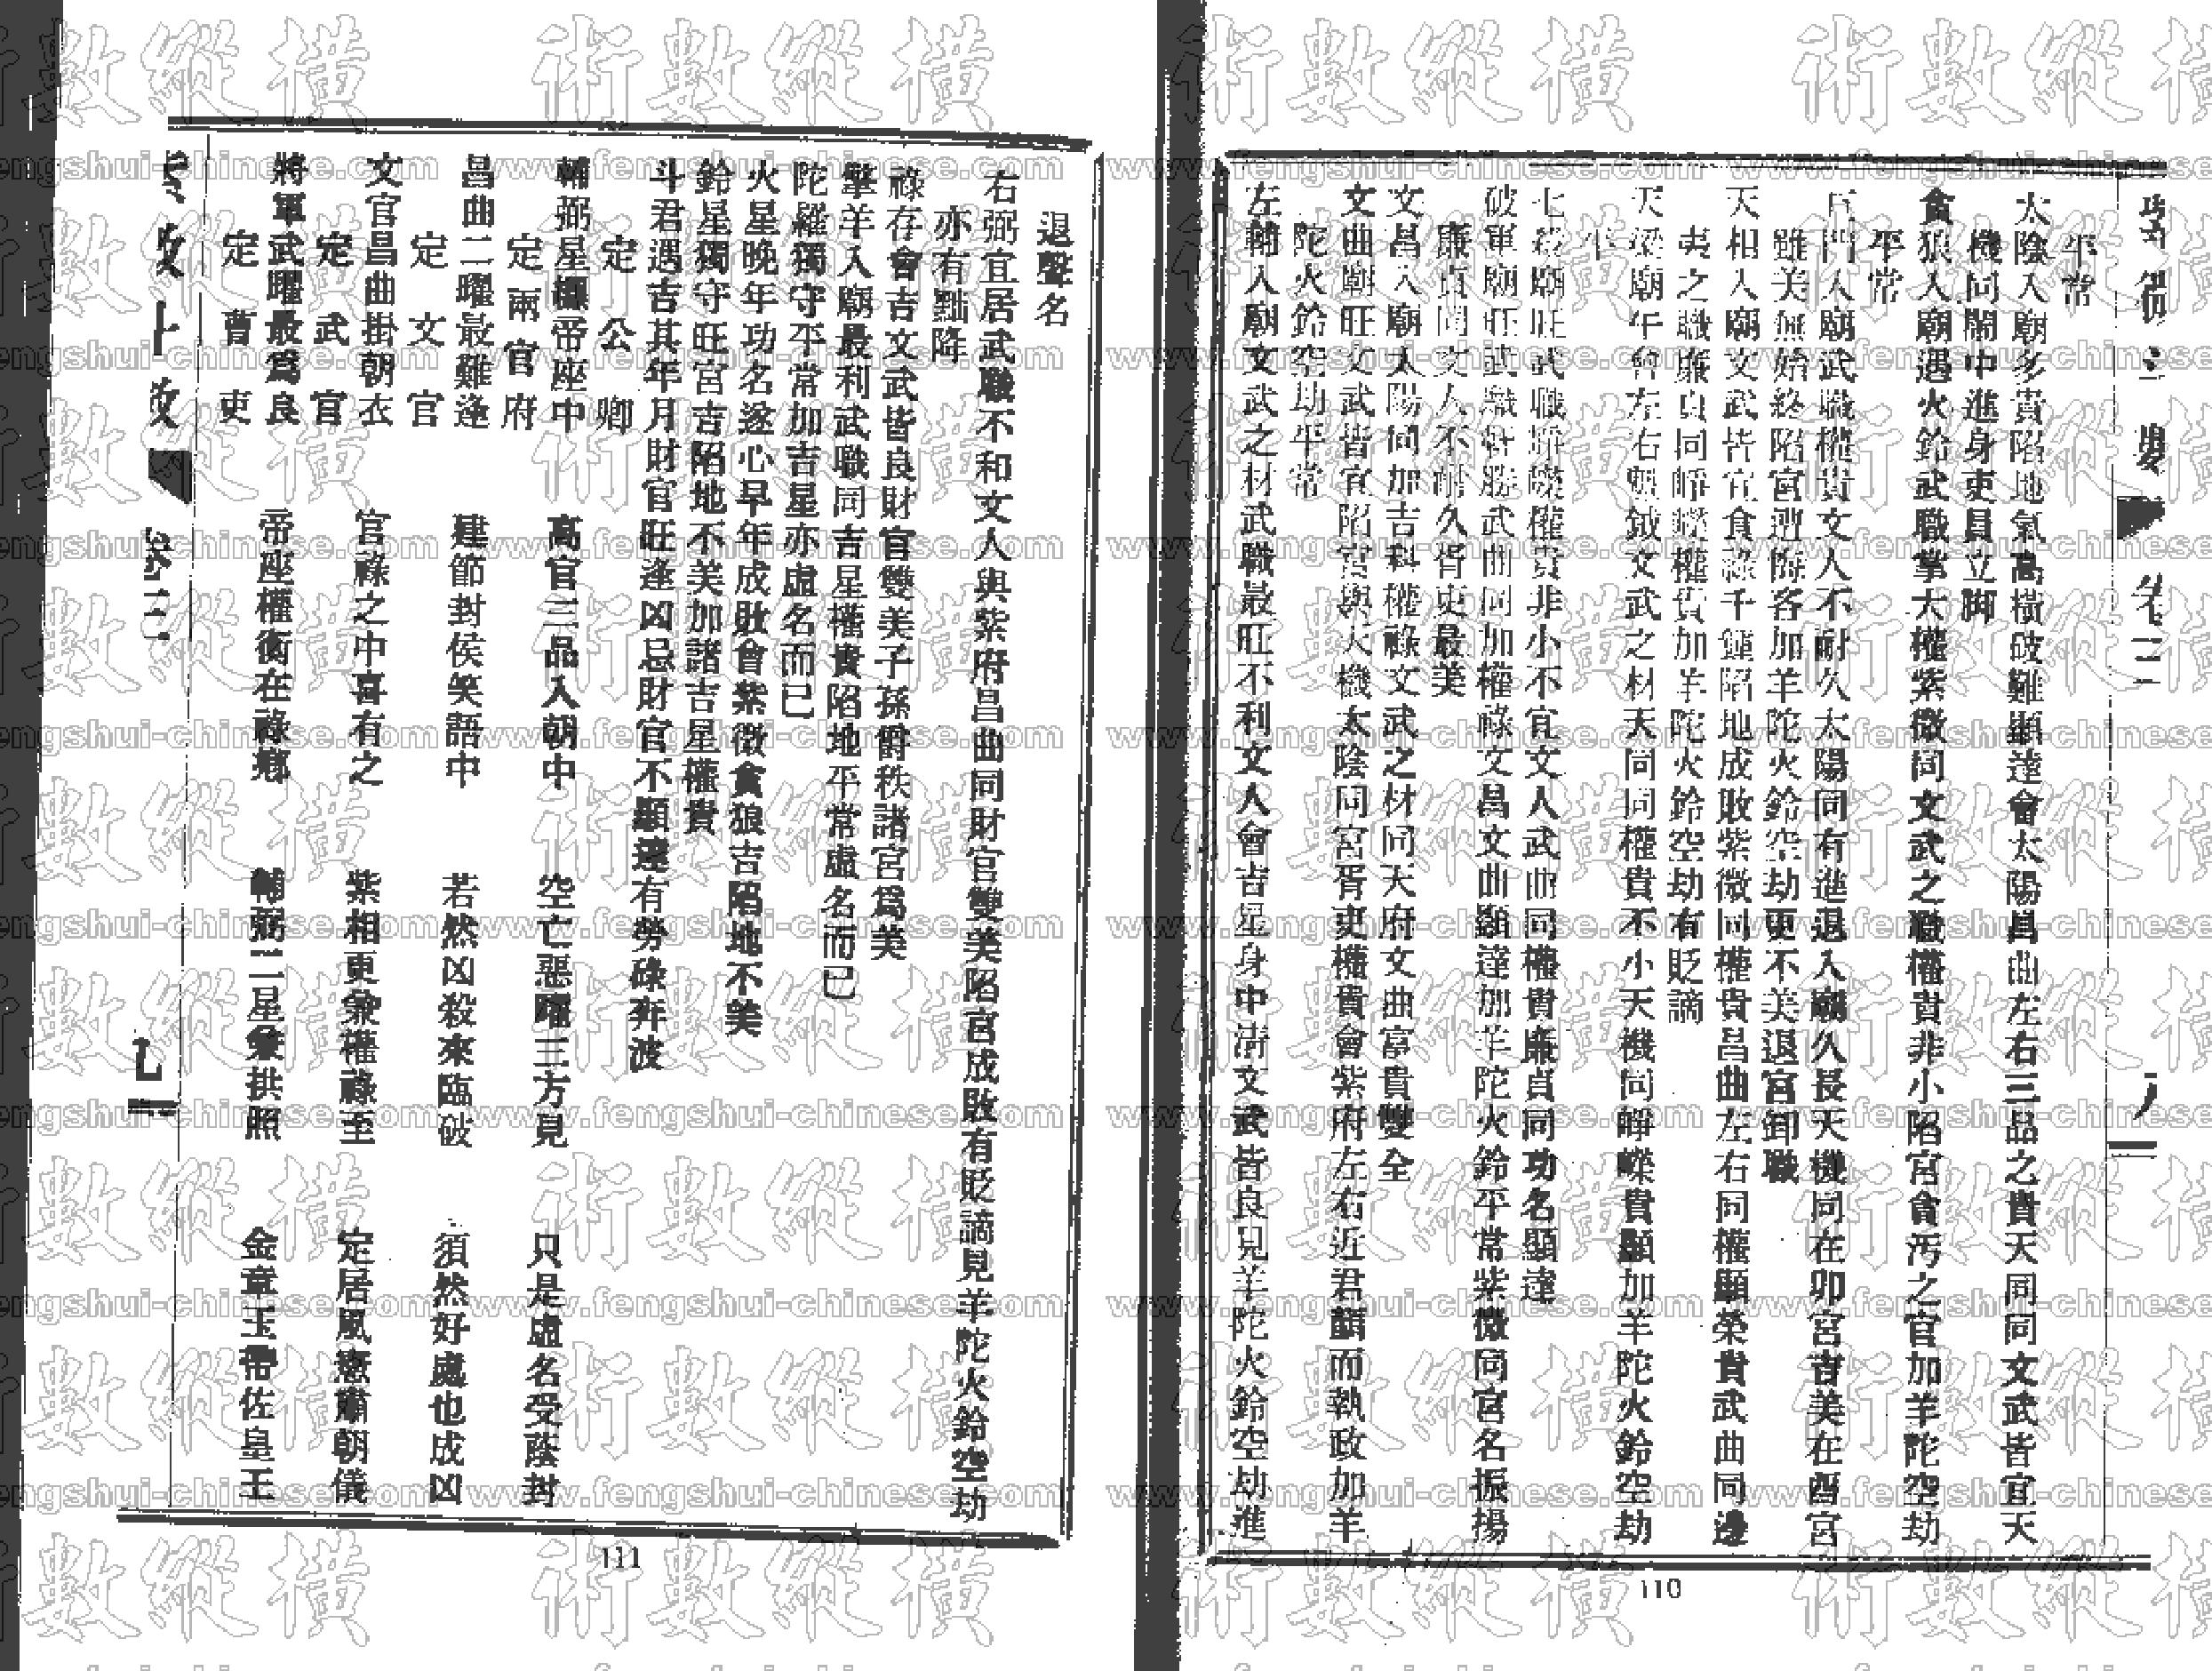 平常
太陰入廟多貴陷地氣高橫破難顯達會太陽昌曲左右三品之貴天同同文武皆宜天
機同閙中進身吏員立脚
貪狼入廟遇火鈴武職掌大權紫微同文武之職權貴非小陷宮貪汚之官加羊陀空劫
平常
巨門入廟武職權貴文人不耐久太陽同有進退入廟久長天機同在卯宮吉美在酉宮
雖美無始終陷宮遭悔吝加羊陀火鈴空劫更不美退官卸職
天相入廟文武皆宜食祿千鍾陷地成敗紫微同權貴昌曲左右同權顯榮貴武曲同邊
夷之職廉貞同崢嶸權貴加羊陀火鈴空劫有貶謫
天梁廟午會左右魁鉞文武之材天同同權貴不小天機同崢嶸貴顯加羊陀火鈴空劫
平
七殺廟旺武職崢嶸權貴非小不宜文人武曲同權貴廉貞同功名顯達
破軍廟旺武職軒勝武曲同加權祿文昌文曲顯達加羊陀火鈴平常紫微同宮名振揚
廉貞同文人不耐久胥吏最美
文昌入廟太陽同加吉科權祿文武之材同天府文曲富貴雙全
文曲廟旺文武皆宜陷宮與天機太陰同宮胥吏權貴會紫府左右近君顏而執政加羊
陀火鈴空劫平常
左輔入廟文武之材武職最旺不利文人會吉星身中清文武皆良見羊陀火鈴空劫進
110
退聲名
右弼宜居武職不和文人與紫府昌曲同財官雙美陷宮成敗有貶謫見羊陀火鈴空劫
亦有黜降
祿存會吉文武皆良財官雙美子孫爵秩諸宮爲美
擎羊入廟最利武職同吉星權貴陷地平常虛名而已
陀羅獨守平常加吉星亦虛名而已
火星晚年功名遂心早年成敗會紫微貪狼吉陷地不美
鈴星獨守旺宮吉陷地不美加諸吉星權貴
斗君遇吉其年月財官旺逢凶忌財官不顯達有勞碌奔波
定公卿
輔弼星纏帝座中 高官三品入朝中 空亡惡曜三方見 只是虛名受蔭封
定兩官府
昌曲二曜最難逢 建節封侯笑語中 若然凶殺來臨破 須然好處也成凶
定文官
文官昌曲掛朝衣 官祿之中喜有之 紫相更兼權祿至 定居風憲肅朝儀
定武官
將軍武曜最爲良 帝座權衡在祿鄉 輔弼二星兼拱照 金章玉帶佐皇王
定曹吏
卷三
九
111
術數縱橫
www.fengshui-chinese.com